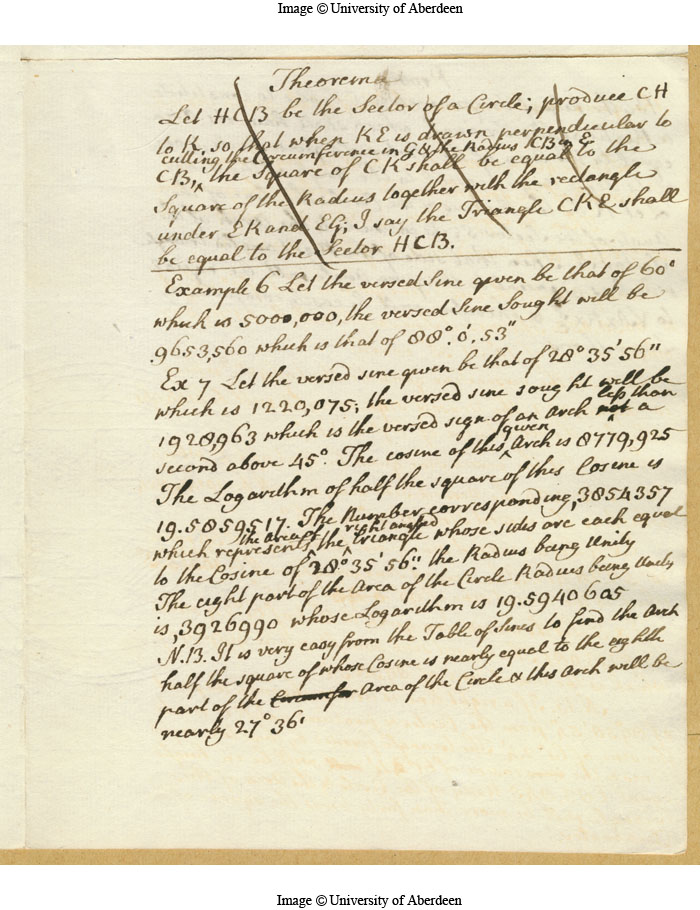 Image © University of Aberdeen
Theorema
Let HCB be the Sector of a Circle; produce CH
to K, so that when KE is drawn perpendicular to
cutting the Circumference in G & the Radius CB in E
CB, the Square of CK shall be equal to the
Square of the Radius together with the rectangle
under EK and EG; I say the Triangle CKE shall
be equal to the Sector HCB.
Example 6 Let the versed sine given be that of 60°
which is 5000,000, the versed sine sought will be
9653,560 which is that of 88°. 0'. 53"
Ex 7 Let the versed sine given be that of 28° 35' 56"
which is 1220,075; the versed sine sought will be
less than
1928,963 which is the versed sign of an Arch not a
given
second above 45°. The cosine of this Arch is 8779,925
The Logarithm of half the square of this Cosine is
19.5859517. The Number corresponding ,3854357
the area of right angled
which represents the triangle whose sides are each equal
to the Cosine of 28° 35' 56": the Radius being Unity
The eight part of the Area of the Circle Radius being Unity
is ,3926990 whose Logarithm is 19.5940605
N.B. It is very easy from the Table of Sines to find the Arch
half the square of whose Cosine is nearly equal to the eighth
part of the Circumfer Area of the Circle & this Arch will be
nearly 27° 36'
Image © University of Aberdeen